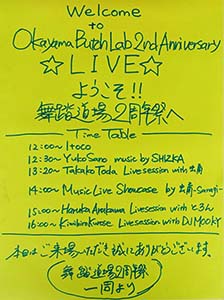 Welcome
to
Okayama Butoh Lab 2nd Anniversary
☆LIVE☆
ようこそ!!
舞踏道場2周年祭へ
Time Table
12:00〜 Itoco
12:30〜 Yuko Sano music by SHIZKA
13:20〜 Takako Toda Live session with
14:00〜 Music Live Showcase by
15:00〜 Haruka Arakawa Live session with とろん
16:00〜 Kinbirin Kurose Live session with DJ MOOKY
本日はご来場いただき誠にありがとうございます。
舞踏道場2周年祭
一同より